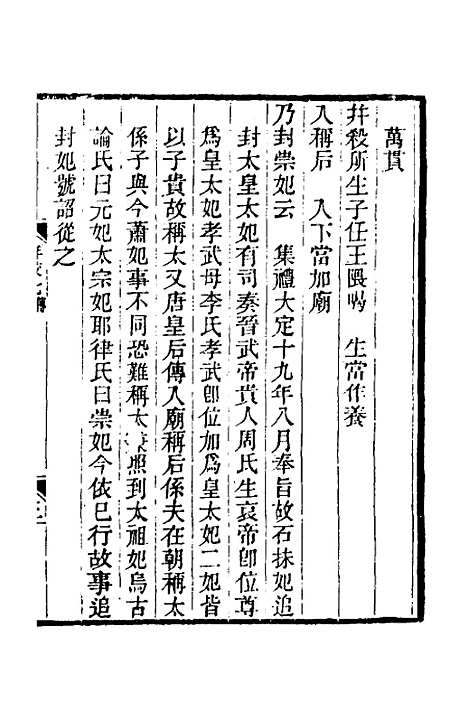 萬貫
幷殺所生子任王隈喝　生當作養
入稱后　入下當加廟
乃封崇妃云　集禮大定十九年八月奉旨故石抹妃追
封太皇太妃有司奏晉武帝貴人周氏生哀帝卽位尊
爲皇太妃孝武母李氏孝武卽位加爲皇太妃二妃皆
以子貴故稱太又唐皇后傳入廟稱后係夫在朝稱太
係子與今蕭妃事不同恐難稱太照到太祖妃烏古
論氏曰元妃太宗妃耶律氏曰崇妃今依已行故事追
封妃號詔從之